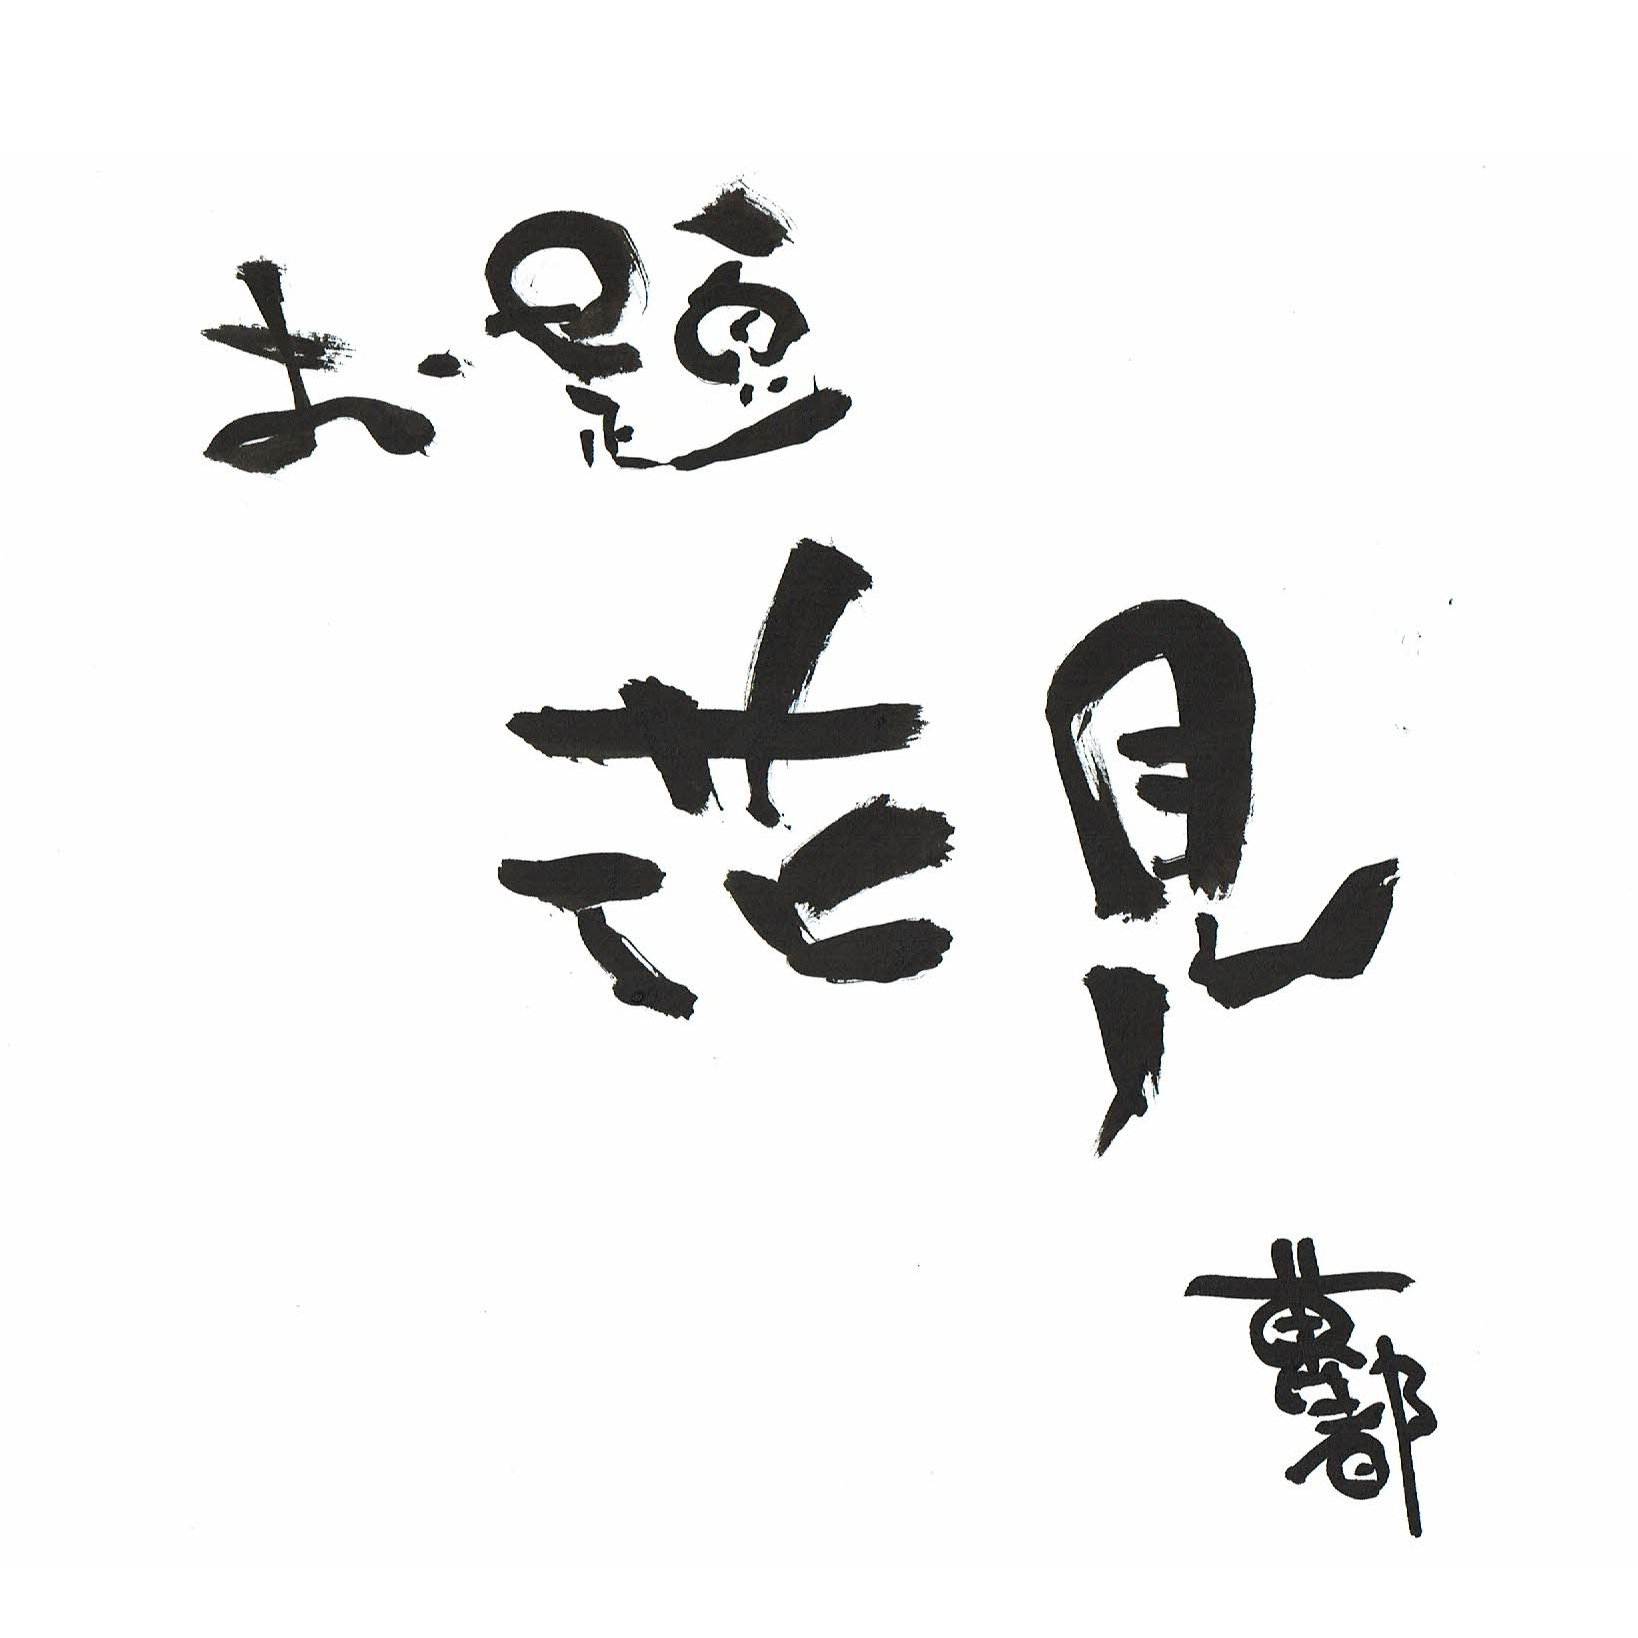 お題
花見
萬都